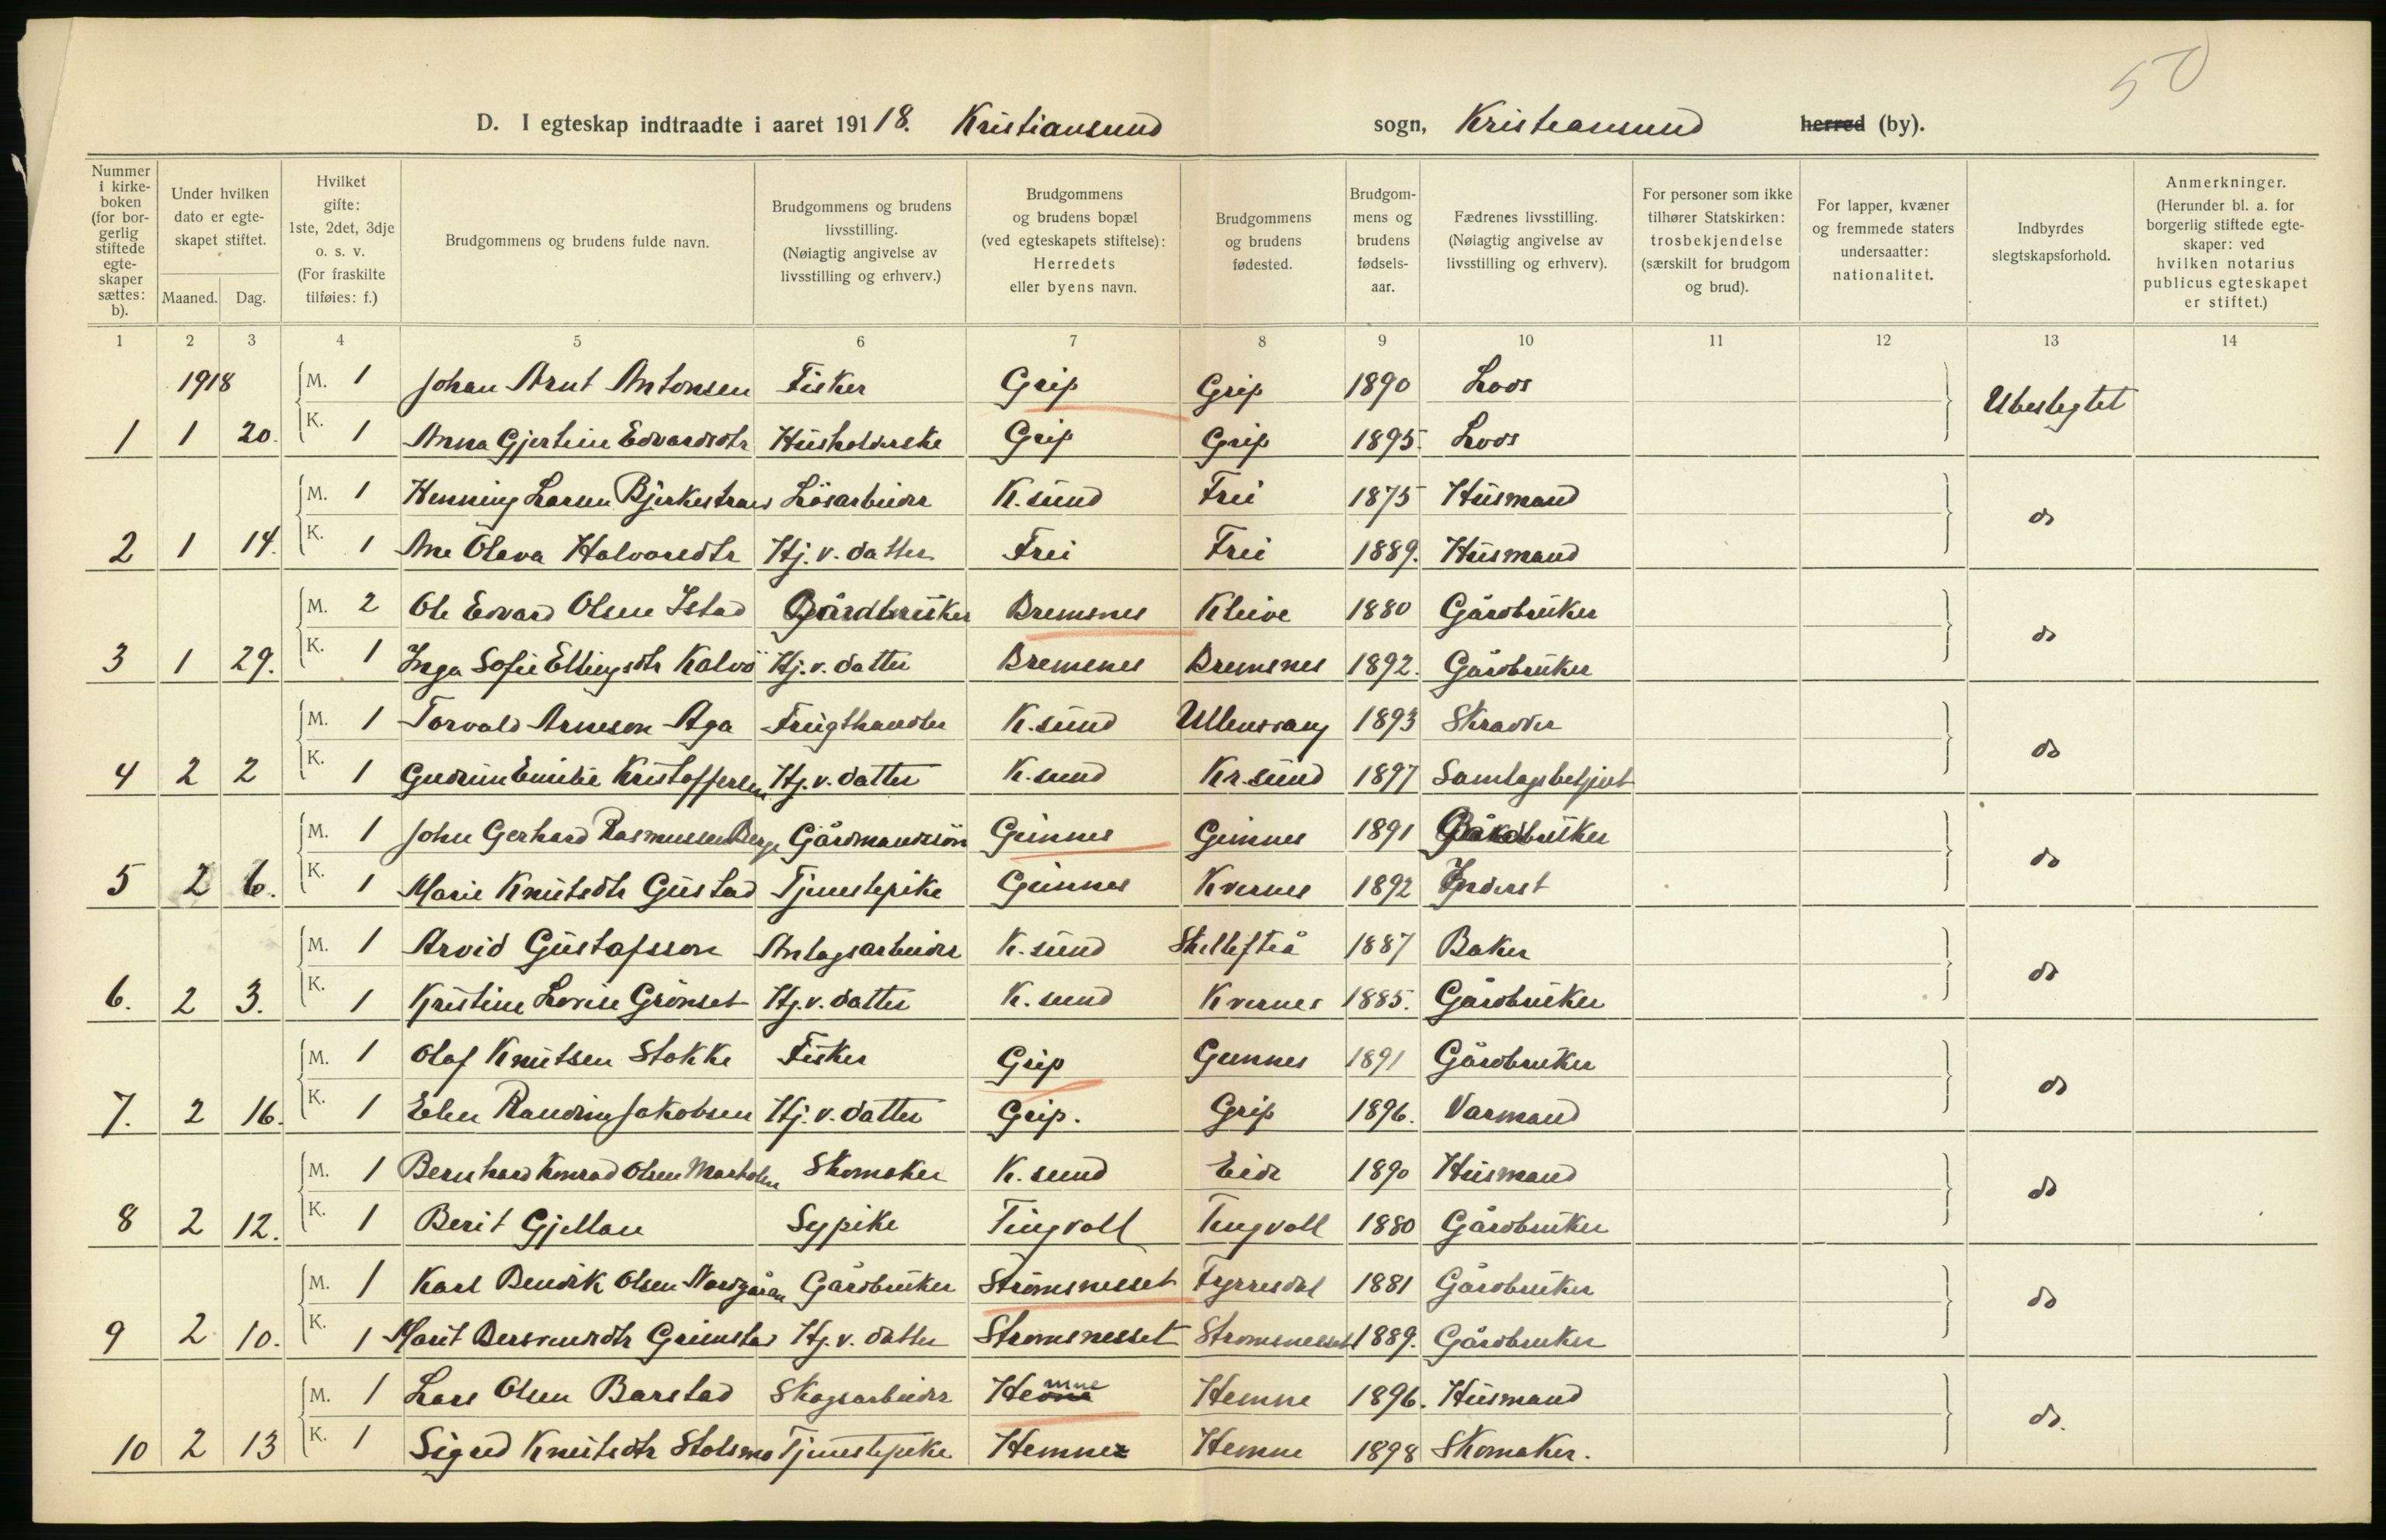 50
D. I egteskap indtraadte i aaret 191 18. Kristiansund sogn, Kristiansund herred (by).
Nummer i kirkeboken (for borgerlig stiftede egteskaper sættes: b). | Under hvilken dato er egteskapet stiftet. Maaned. Dag. | Hvilket gifte: 1ste, 2det, 3dje o. s. v. (For fraskilte tilføies: f.) | Brudgommens og brudens fulde navn. | Brudgommens og brudens livsstilling. (Nøiagtig angivelse av livsstilling og erhverv.) | Brudgommens og brudens bopæl (ved egteskapets stiftelse): Herredets eller byens navn. | Brudgommens og brudens fødested. | Brudgommens og brudens fødselsaar. | Fædrenes livsstilling. (Nøiagtig angivelse av livsstilling og erhverv). | For personer som ikke tilhører Statskirken: trosbekjendelse (særskilt for brudgom og brud). | For lapper, kvæner og fremmede staters undersaatter: nationalitet. | Indbyrdes slegtskapsforhold. | Anmerkninger. (Herunder bl. a. for borgerlig stiftede egteskaper: ved hvilken notarius publicus egteskapet er stiftet.)
1 2 3 4 5 6 7 8 9 10 11 12 13 14
1918 M. 1 Johan Arnt Antonsen Fisker Grip Grip 1890 Lods Ubeslegtet
1 1 20. K. 1 Anna Gjertine Edvardsdtr Husholderske Grip Grip 1895. Lods
M. 1 Henning Larsen Bjerkestrand Lösarbeider K.sund Frei 1875 Husmand do
2 1 14. K. 1 Ane Olava Halvorsdtr Hj.v. datter Frei Frei 1889. Husmand
M. 2 Ole Edvard Olsen Istad Gårdbruker Bremsnes Kleive 1880 Gårdbruker do
3 1 29. K. 1 Inga Sofie Ellingsdtr Kalvö Hj.v. datter Bremsnes Bremsnes 1892. Gårdbruker
M. 1 Torvald Arneson Aga Frugthandler K.sund Ullensvang 1893 Skradder do
4 2 2 K. 1 Gudrun Emilie Kristoffersen Hj.v. datter K.sund Kr.sund 1897 Samlagsbetjent
M. 1 John Gerhard Rasmussen Berge Gårdmandssön Geinnes Geinnes 1891 Gårdbruker do
5 2 6. K. 1 Marie Knutsdtr Gustad Tjenestepike Geinnes Kvernes 1892 Inderst
M. 1 Arvid Gustafsson Anlagsarbeider K.sund Skellefteå 1887 Baker do
6. 2 3. K. 1 Kristine Lovise Grönset Hj.v. datter K.sund Kvernes 1885. Gårdbruker
M. 1 Olaf Knutsen Stokke Fisker Grip Geinnes 1891 Gårdbruker do
7. 2 16. K. 1 Elen Randine Jakobsen Hj.v. datter Grip. Grip 1896. Varmand
M. 1 Bernhard Konrad Olsen Markolm Skomaker K.sund Eide 1890 Husmand do
8 2 12. K. 1 Berit Gjellan Sypike Tingvoll Tingvoll 1880 Gårdbruker
M. 1 Karl Bendik Olsen Nordgåran Gårdbruker Strömsnesset Fyrresdal 1881 Gårdbruker do
9 2 10. K. 1 Marit Bersvendsdtr Grimstad Hj.v. datter Strömsnesset Stromsnesset 1889. Gårdbruker
M. 1 Lars Olsen Barstad Skogsarbeider Hemne Hemne 1896. Husmand do.
10 2 13 K. 1 Sigrid Knutsdtr Stolsmo Tjenestepike Hemne Hemne 1898 Skomaker.